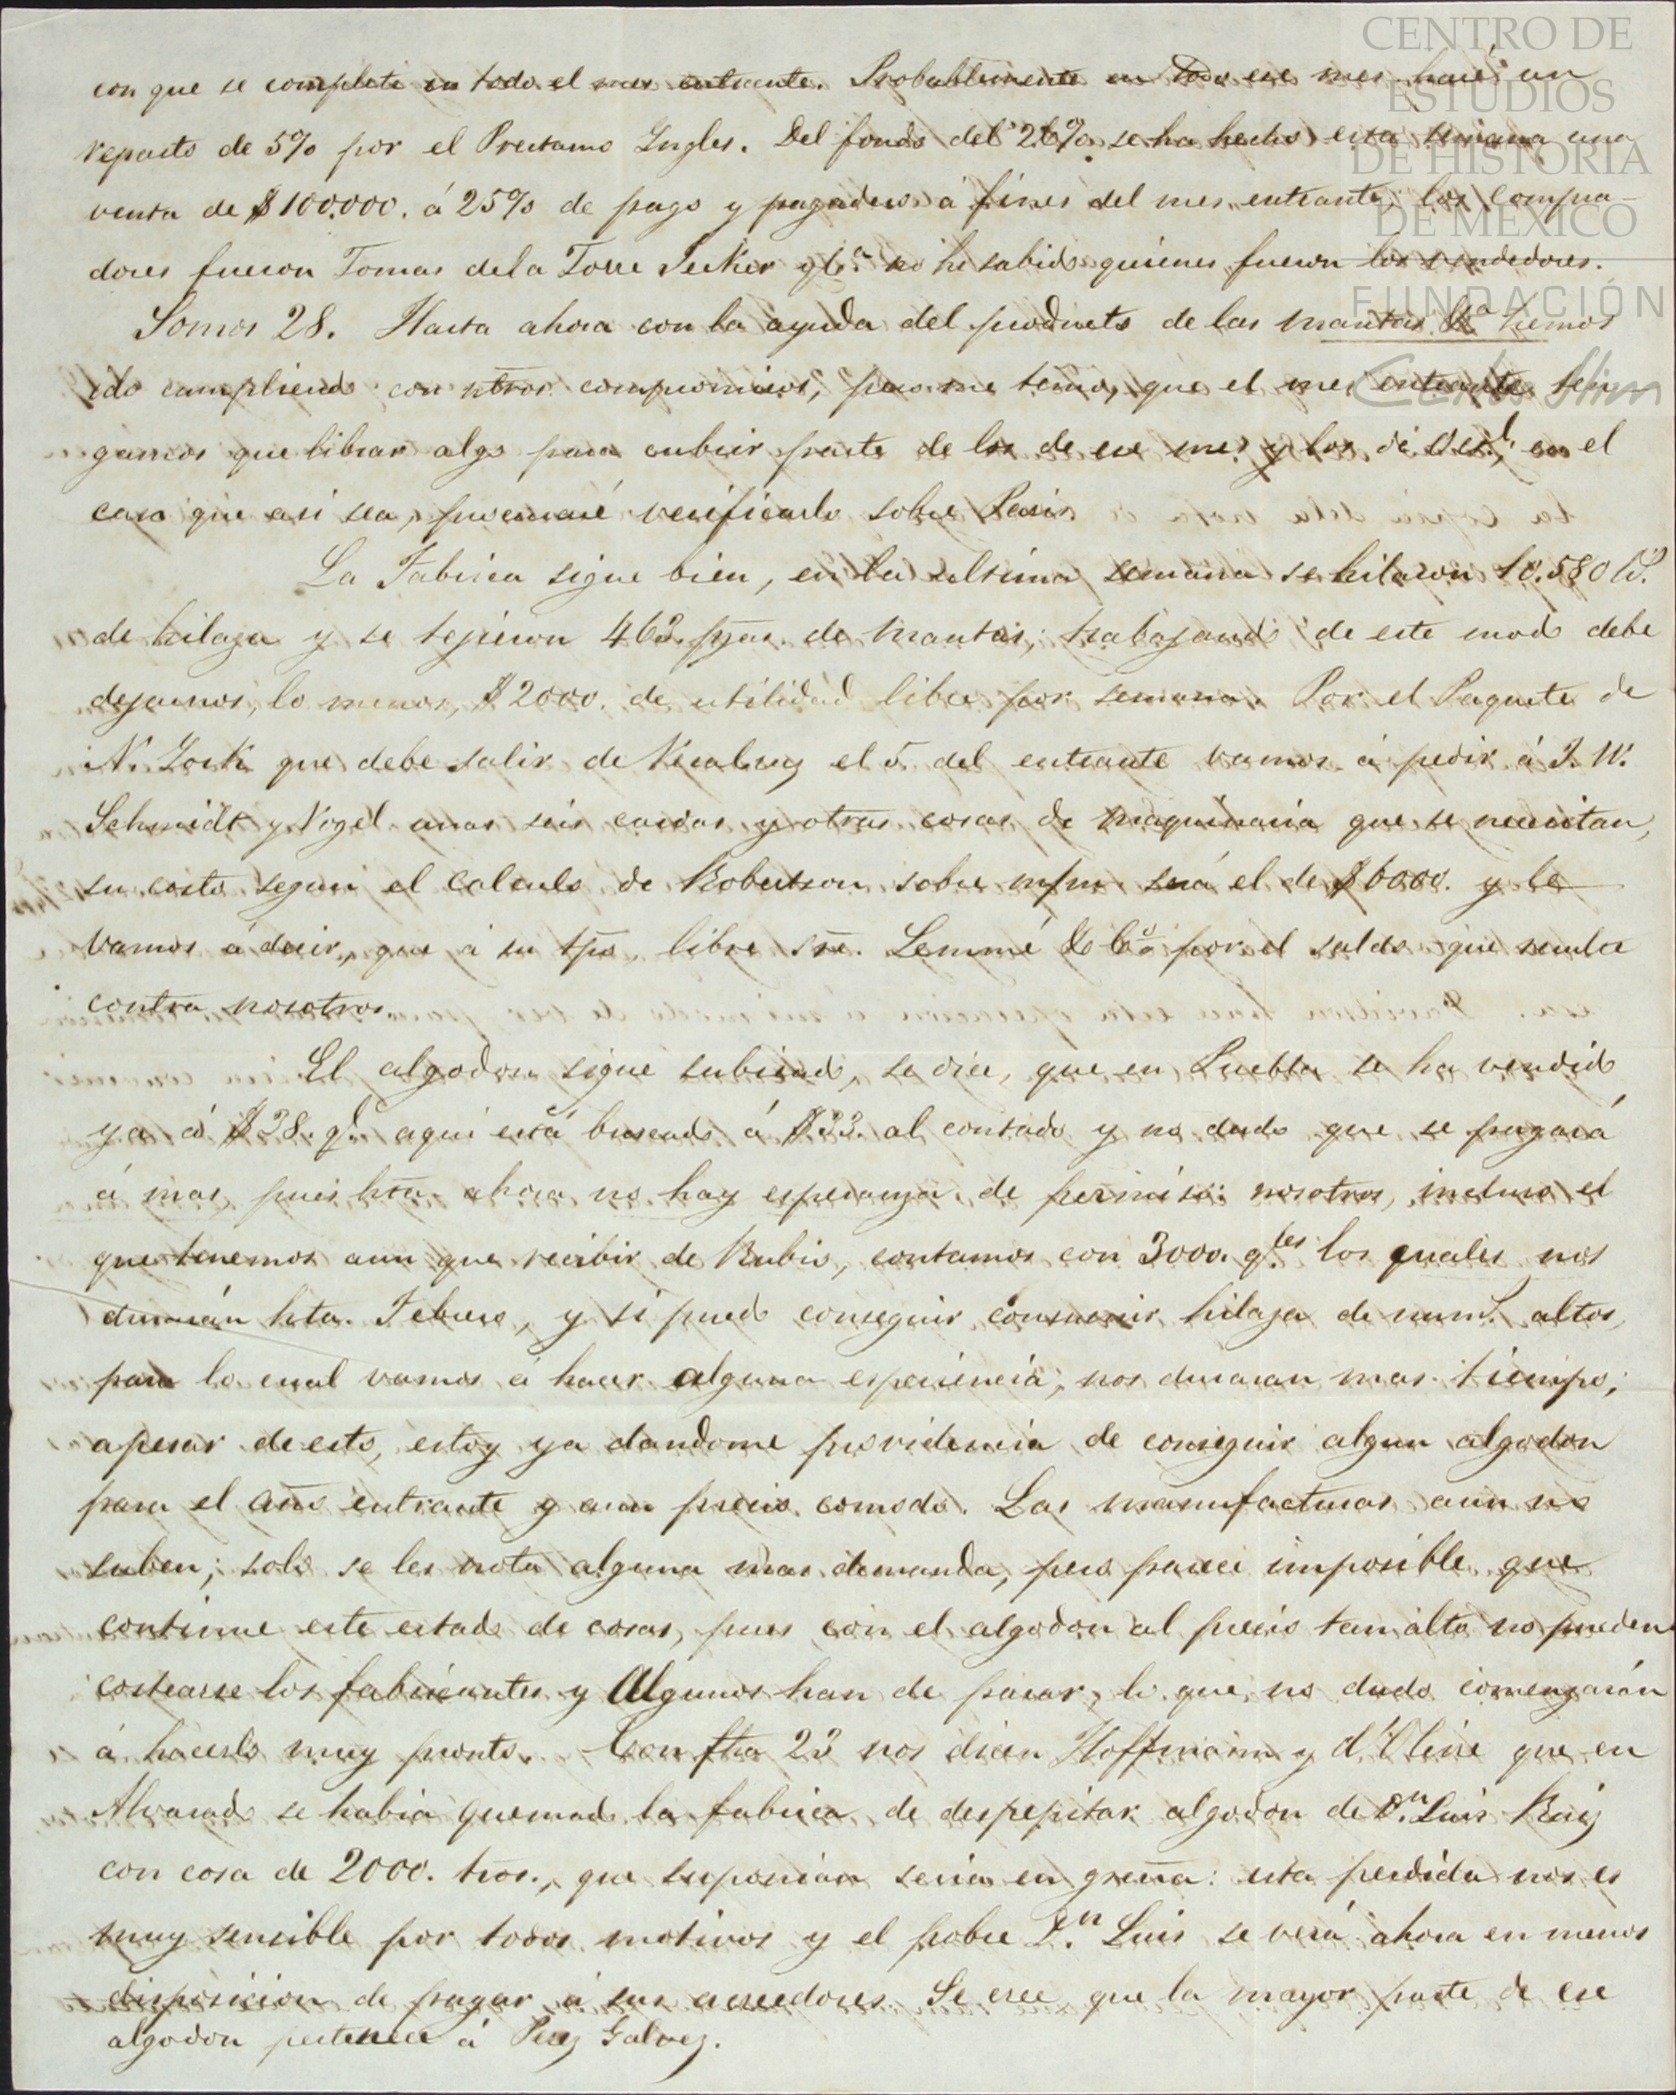 CENTRO DE
ESTUDIOS
DE HISTORIA
DE MEXICO
FUNDACIÓN
Carlos Slim
con que se complete en todo el mes entrante. Probablemente en todo ese mes haré un
reparto de 5% por el Prestamo Yngles. Del fondo del 26% se ha hecho esta semana una
venta de $100.000. á 25% de pago y pagadero á fines del mes entrante; los compra-
dores fueron Tomas dela Torre Jecker y Ca. no he sabido quienes fueron los vendedores.
Somos 28. Hasta ahora con la ayuda del producto de las mantas &a hemos
ido cumpliendo con ntros. compromisos, pero me temo, que el mes entrante ten-
gamos que librar algo para cubrir parte de los de ese mes y los de en el
caso que asi sea, procuraré verificarlo sobre Paris.
La Fabrica sigue bien, en la ultima semana se hilaron 10.580 lb.
de hilaza y se tejieron 463. pzas. de mantas; trabajando de este modo debe
dejarnos, lo menos, $2000. de utilidad libre por semana. Por el Paquete de
N. York que debe salir de Veracruz el 5. del entrante vamos á pedir á J. W.
Schmidt y Vogel unas seis cardas y otras cosas de maquinaria que se necesitan,
su costo segun el calculo de Robertson sobre m/m será el de $6000. y le
vamos á decir, que á su tpo. libre sre. Lemmé & Co por el saldo que resulte
contra nosotros.
El algodon sigue subiendo, se dice, que en Puebla se ha vendido
ya á $38. ql. aqui está buscado á $33. al contado y no dudo que se pagará
á mas, pues hta. ahora no hay esperanza de permiso: nosotros, incluso el
que tenemos aun que recibir de Rubio, contamos con 3000. qles. los quales nos
durarán hta. Febrero, y si puedo conseguir consumir hilaza de nums. altos,
para lo cual vamos á hacer alguna esperiencia, nos duraran mas tiempo;
apesar de esto, estoy ya dandome providencia de conseguir algun algodon
para el año entrante y aun precio comodo. Las manufacturas aun no
suben; solo se les nota alguna mas demanda, pero parece imposible que
continue este estado de cosas, pues con el algodon al precio tan alto no pueden
costearse los fabricantes y Algunos han de parar, lo que no dudo comenzarán
á hacerlo muy pronto. Con fha 23 nos dicen Hoffmann y d'Oleire que en
Alvarado se habia quemado la fabrica de despepitar algodon de Dn. Luis Ruiz
con cosa de 2000. tros., que suponian seria en greña: esta perdida nos es
muy sensible por todos motivos y el pobre Dn. Luis se verá ahora en menos
disposicion de pagar á sus acreedores. Se cree que la mayor parte de ese
algodon pertenece á Perez Galvez.